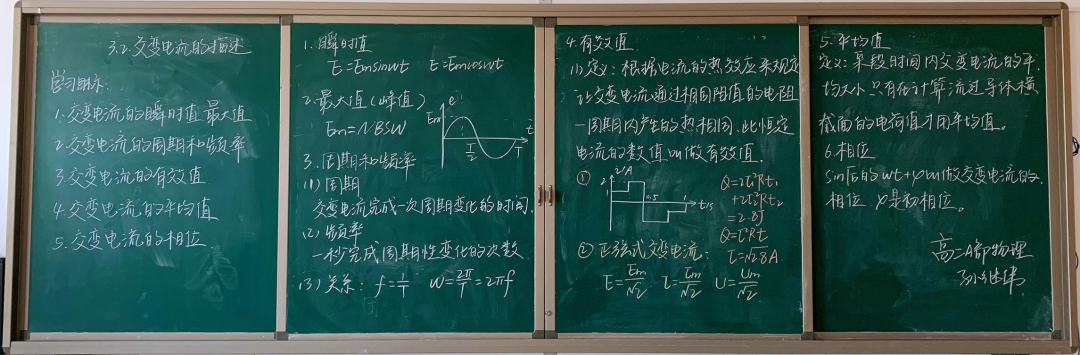 3.2.交变电流的描述
学习目标:
1.交变电流的瞬时值 最大值
2.交变电流的周期和频率
3.交变电流的有效值
4.交变电流的平均值
5.交变电流的相位
1.瞬时值
E=Emsinwt E=Emcoswt
2.最大值(峰值)
Em=NBSW
e
Em
T/2
T
t
3.周期和频率
(1)周期
交变电流完成一次周期变化的时间.
(2)频率
一秒完成周期性变化的次数
(3)关系: f=1/T W=2π/T=2πf
4.有效值
(1)定义:根据电流的热效应来规定
一周期内产生的热相同,此恒定
电流的数值叫做有效值.
①
i/A
2
1
0.5
t/s
=2.8J
②正弦式交变电流:
E=Em/√2 I=Im/√2 U=Um/√2
5.平均值
定义:某段时间内交变电流的平
均大小只有在计算流过导体横
截面的电荷值才用平均值。
6.相位
sin后的wt+φ叫做交变电流的
相位 φ是初相位。
高二A部物理